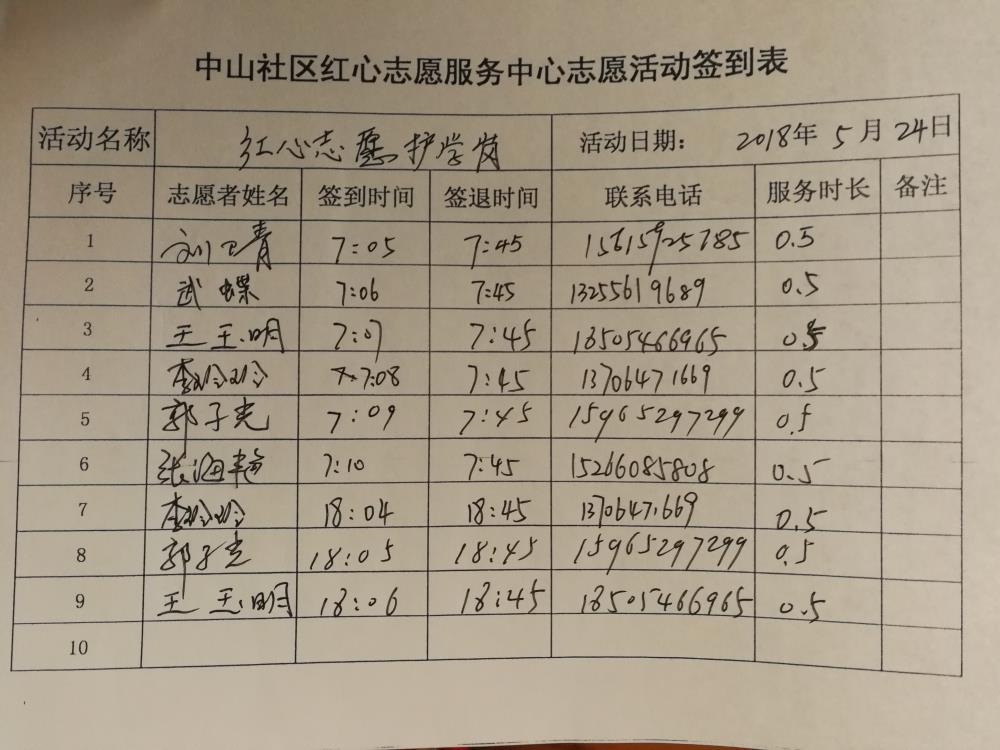 中山社区红心志愿服务中心志愿活动签到表
活动名称 红心志愿护学岗 活动日期: 2018年 5月 24日
序号 志愿者姓名 签到时间 签退时间 联系电话 服务时长 备注
1 刘卫青 7:05 7:45 15615925785 0.5
2 武蝶 7:06 7:45 13255619689 0.5
3 王玉明 7:07 7:45 18505466965 0.5
4 李玲玲 7:08 7:45 13706471669 0.5
5 郭子光 7:09 7:45 15965297299 0.5
6 张海艳 7:10 7:45 15266085808 0.5
7 李玲玲 18:04 18:45 13706471669 0.5
8 郭子光 18:05 18:45 15965297299 0.5
9 王玉明 18:06 18:45 18505466965 0.5
10